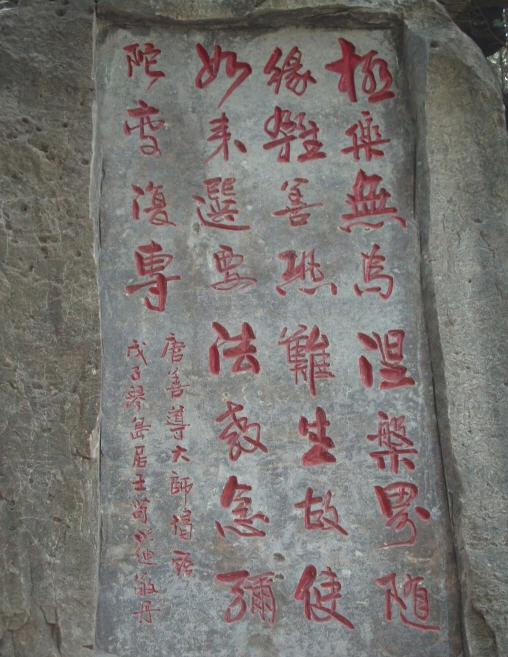 極樂無為涅槃界随
緣雜善恐難生故使
如来選要法教念彌
陀专復專
唐善導大師偈語
戊子琴島居士敬丹